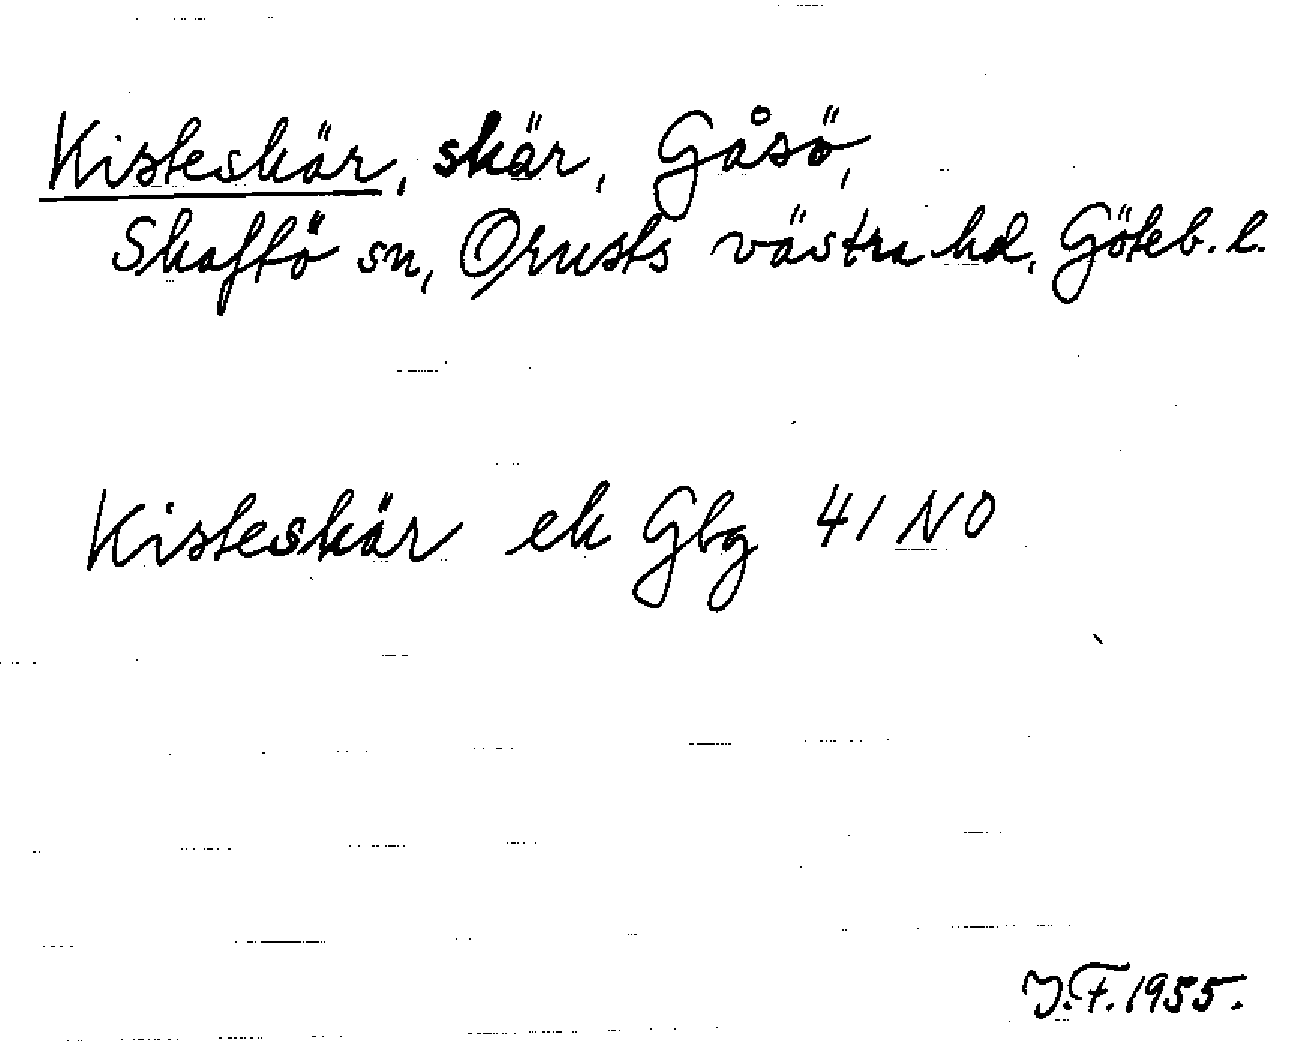 Kisteskär, skär, Gåsö,
Skaftö sn, Orusts västra hd, Göteb. l.
Kisteskär ek Gbg 41 NO
J.F. 1955.